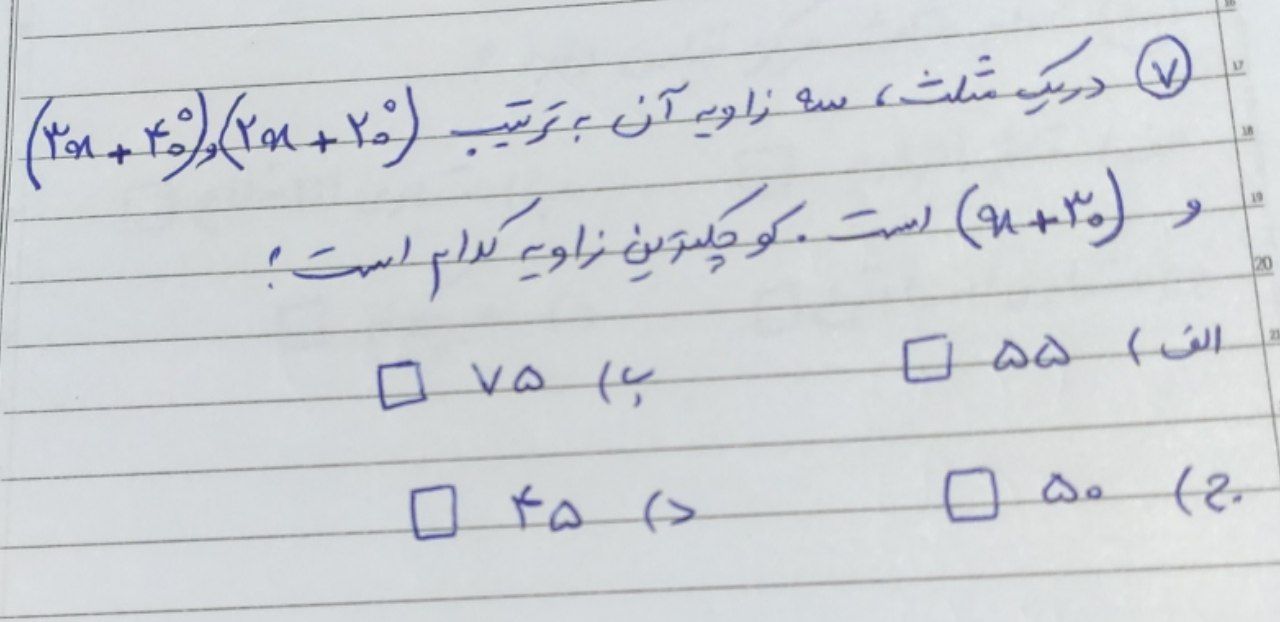 ۷ در یک مثلث، سه زاویه آن به ترتیب (۲x + ۲۰°) و (۳x + ۴۰°)
و (x + ۳۰) است. کوچکترین زاویه کدام است؟
الف) ۵۵ □ ب) ۷۵ □
ج) ۵۰ □ د) ۴۵ □